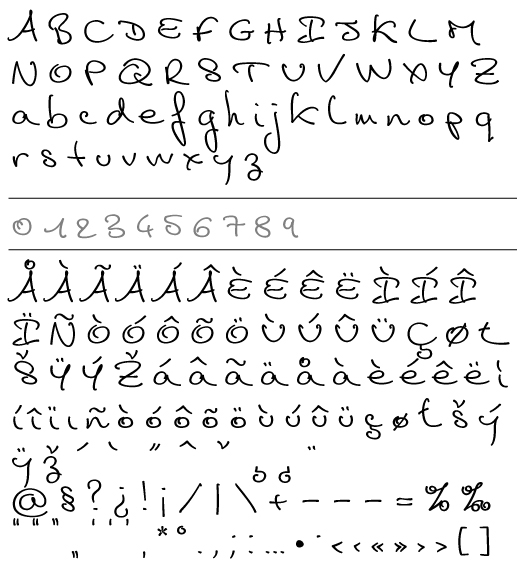 A B C D E F G H I J K L M
N O P Q R S T U V W X Y Z
a b c d e f g h i j k l m n o p q
r s t u v w x y z
0 1 2 3 4 5 6 7 8 9
Å À Ã Ä Á Â È É Ê Ë Ì Í Î
Ï Ñ Ò Ó Ô Õ Ö Ù Ú Û Ü Ç ø
Š Ÿ Ý Ž á â ã ä å à è é ê ë ì
í î ï ı ñ ò ó ô õ ö ù ú û ü ç ø š ý
ÿ ž ´ ` ˝ ˆ ˇ ¨
@ § ? ¿ ! ¡ / | \ + – – – = % ‰
„ ‚ * ° . , ; : … • · < < « » > > [ ]